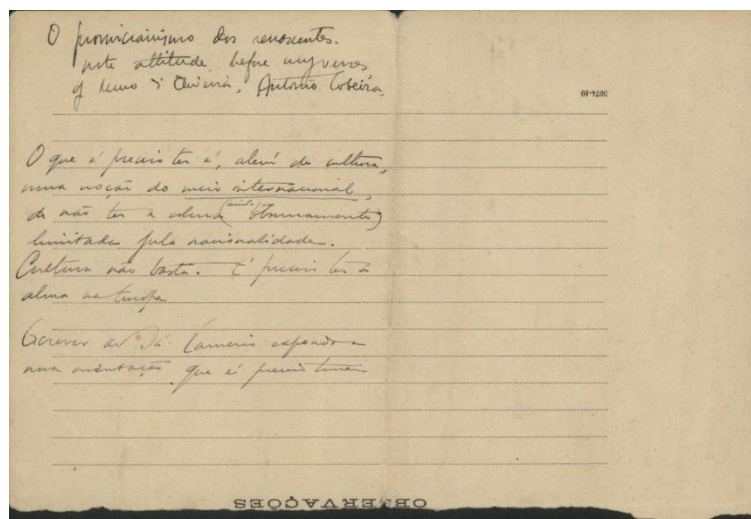 O provincianismo dos renascentes.
note attitude, before
of Nuno d'Oliveira, António Cobeira.
O que é preciso ter é, além de cultura,
uma noção do meio internacional,
de não ter a alma (ainda q obscuramente)
limitada pela nacionalidade.
Cultura não basta. É preciso ter a
alma na Europa
Escrever ao Sá-Carneiro expondo
uma orientação que é preciso tomar
OBSERVAÇÕES